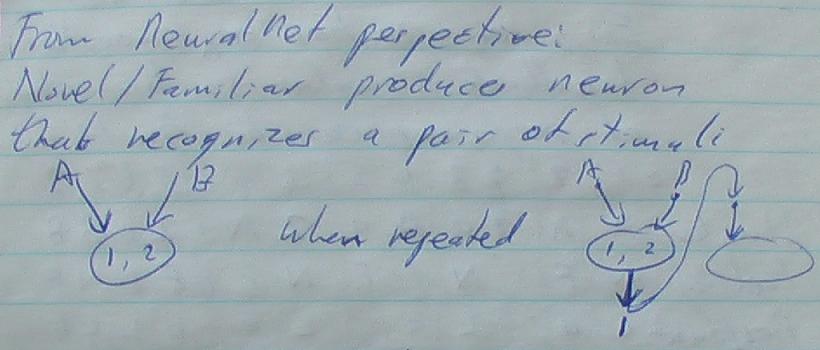 From Neural Net perspective:
Novel/Familiar produces neuron
that recognizes a pair of stimuli
A B A B
1, 2 when repeated 1, 2
1